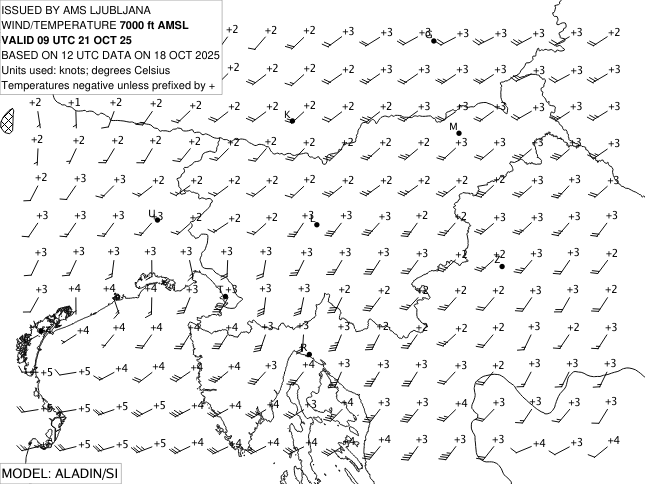 ISSUED BY AMS LJUBLJANA
WIND/TEMPERATURE 7000 ft AMSL
VALID 09 UTC 21 OCT 25
BASED ON 12 UTC DATA ON 18 OCT 2025
Units used: knots; degrees Celsius
Temperatures negative unless prefixed by +
+2 +2 +2 +2 +3 G +3 +3 +3 +3 +3 +2
+2 +2 +2 +2 +2 +2 +3 +3 +3 +3 +3
+2 +1 +2 +2 +2 +2 +2 K +2 +2 +2 +3 +3 +3 +3 +3
M
+2 +2 +2 +2 +2 +2 +2 +2 +2 +2 +2 +2 +3 +3 +3 +3
+2 +3 +3 +2 +2 +2 +2 +2 +2 +2 +2 +2 +3 +3 +3 +3
+3 +3 +3 U +3 +2 +2 +2 +3 L +3 +3 +2 +2 +3 +3 +3 +3
+3 +3 +3 +3 +3 +3 +3 +3 +3 +3 +2 +2 +2 Z +3 +3 +2
+3 +4 +4 +4 +3 T +3 +3 +3 +3 +3 +2 +2 +2 +3 +3 +3
+4 +4 +4 +4 +4 +3 +3 +3 +3 +2 +2 +2 +3 +2 +3
R
+5 +4 +4 +4 +4 +4 +3 +4 +3 +3 +3 +3 +2 +3 +3 +3
+5 +5 +5 +5 +4 +4 +4 +4 +3 +3 +3 +3 +3 +3 +3 +3
+5 +5 +5 +5 +4 +4 +4 +4 +4 +3 +3 +3 +3 +4 +3 +2
MODEL: ALADIN/SI